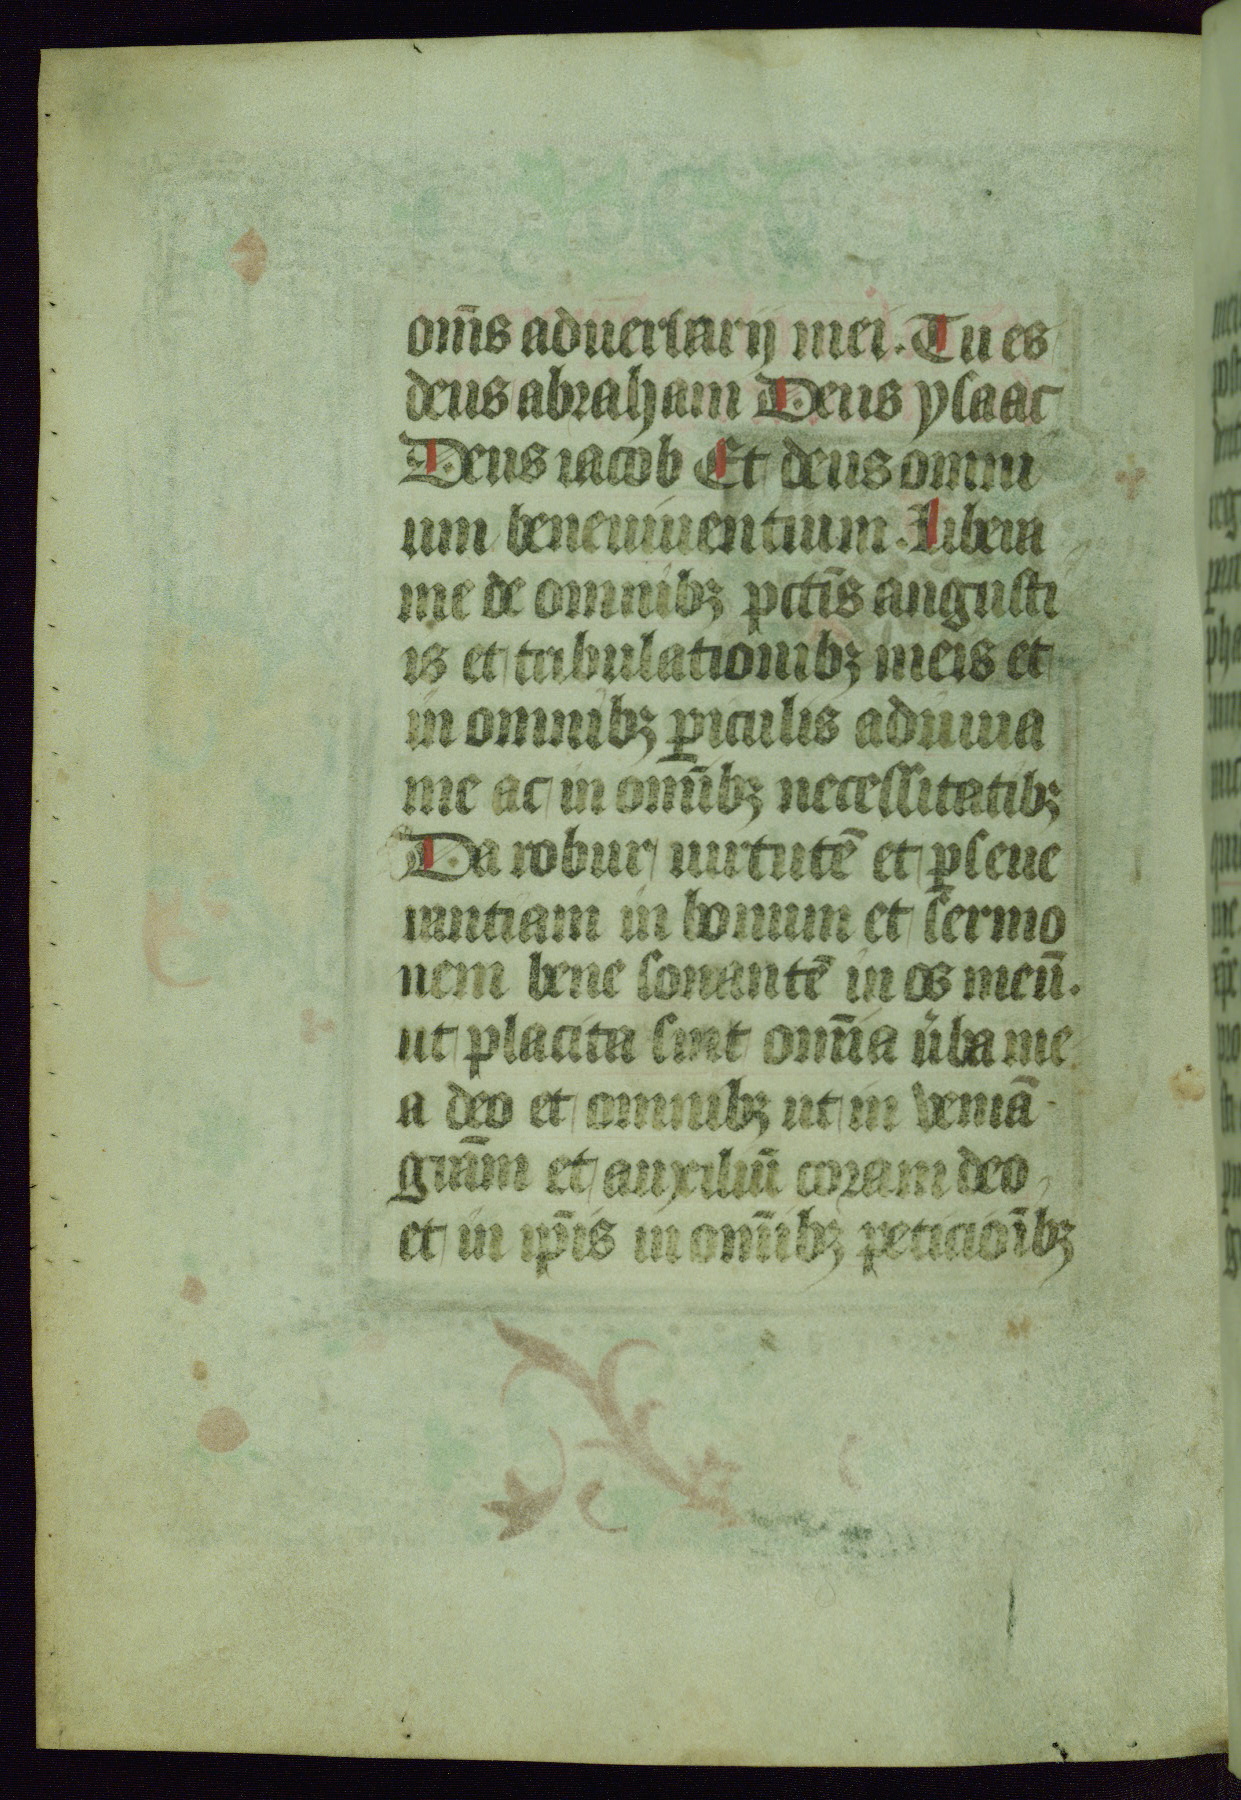 om̄s aduersarij mei. Tu es
deus abraham Deus ysaac
Deus iacob Et deus omni
um beneuiuentium. Libera
me de omnibꝫ pctīs angusti
is et tribulationibꝫ meis et
in omnibꝫ ꝑiculis adiuua
me ac in omībꝫ necessitatibꝫ
Da robur uirtutē et ꝑseue
rantiam in bonum et sermo
nem bene sonantē in os meū.
ut placita sint omīa ūba me
a deo et omnibꝫ ut in veniā
grām et auxiliū coram deo
et in ip̄is in omībꝫ peticiōibꝫ